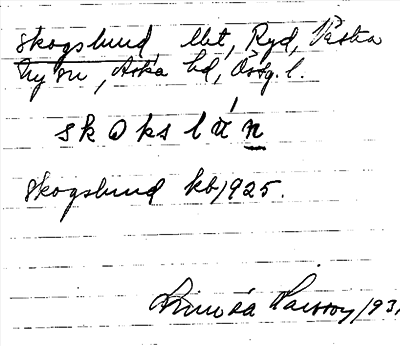 Skogslund, lht, Ryd, Västra
Ny sn, Aska hd, Östg. l.
skɷkslún
Skogslund kb 1925.
Linnéa Larsson 193